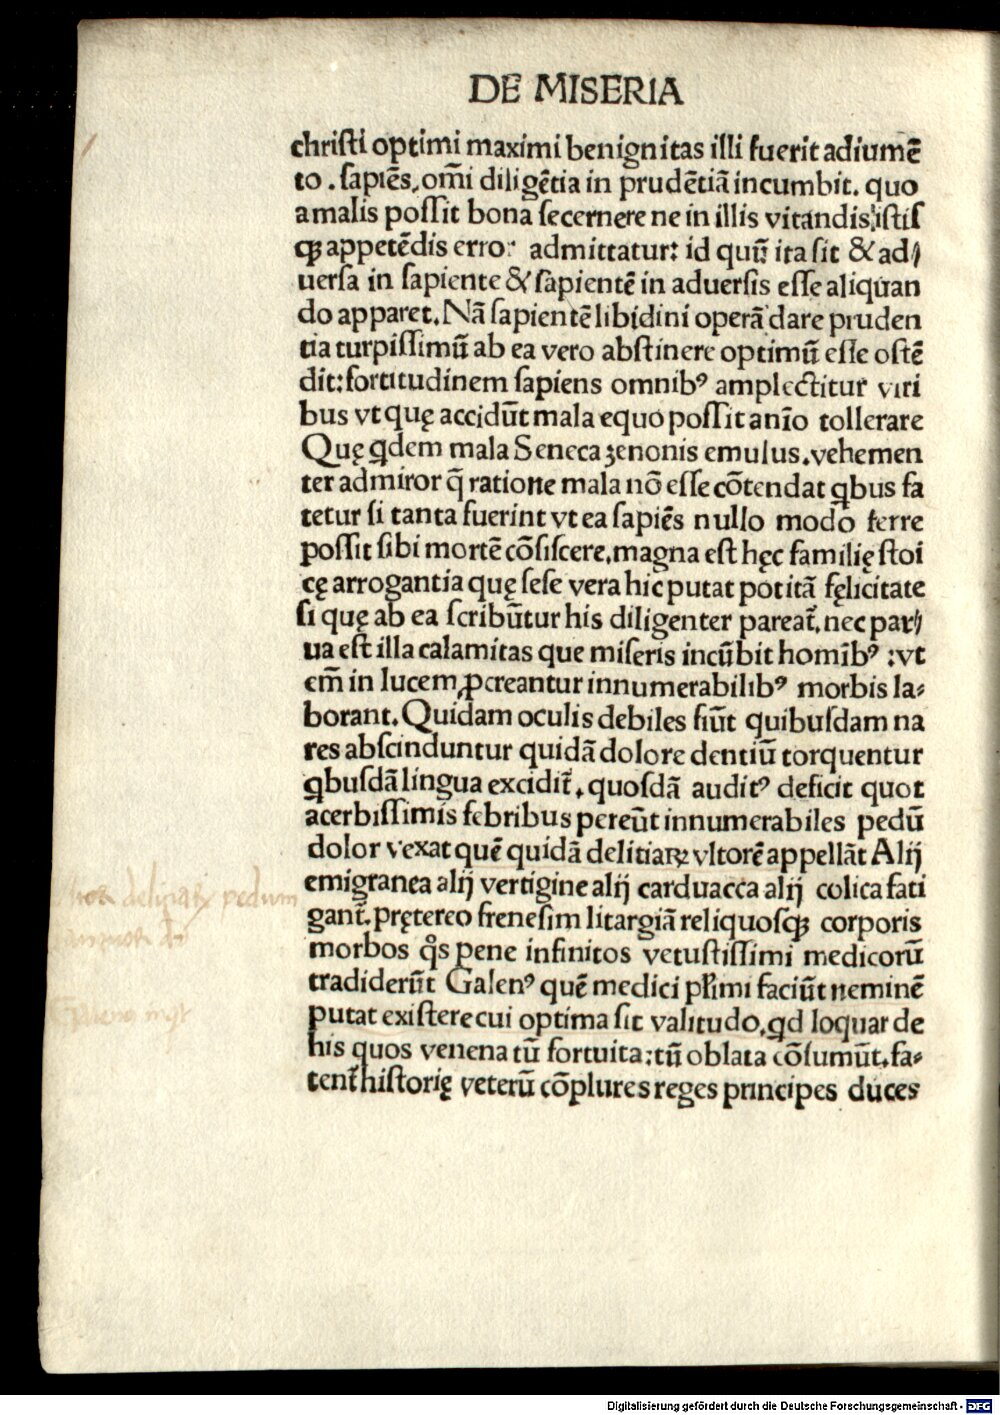 DE MISERIA
chriſti optimi maximi benignitas illi fuerit adiumē
to . ſapiēs, om̄i diligētia in prudētiā incumbit. quo
a malis poſſit bona ſecernere ne in illis vitandis: iſtiſ
qꝫ appetēdis erro admittatur: id quū ita ſit & ad⸗
uerſa in ſapiente & ſapientē in aduerſis eſſe aliquan
do apparet. Nā ſapientē libidini operā dare pruden
tia turpiſſimū ab ea vero abſtinere optimū eſſe oſtē
dit: fortitudinem ſapiens omnibꝰ amplectitur viri
bus vt quę accidūt mala equo poſſit anīo tollerare
Quę qdem mala Seneca ꝫenonis emulus. vehemen
ter admiror q̄ ratione mala nō eſſe cōtendat qbus fa
tetur ſi tanta fuerint vt ea ſapiēs nullo modo ferre
poſſit ſibi mortē cōſiſcere. magna eſt hęc familię ſtoi
cę arrogantia quę ſeſe vera hic putat potitā fęlicitate
ſi quę ab ea ſcribūtur his diligenter pareat̄. nec par⸗
ua eſt illa calamitas que miſeris incūbit homībꝰ : vt
em̄ in lucem ꝓcreantur innumerabilibꝰ morbis la⸗
borant. Quidam oculis debiles fiūt quibuſdam na
res abſcinduntur quidā dolore dentiū torquentur
qbuſdā lingua excidit̄. quoſdā auditꝰ deficit quot
acerbiſſimis febribus pereūt innumerabiles pedū
dolor vexat quē quidā delitiaꝝ vltorē appellāt Alij
emigranea alij vertigine alij carduacca alij colica fati
gant̄. pręterео freneſim litargiā reliquoſqꝫ corporis
morbos qͦs pene infinitos vetuſtiſſimi medicorū
tradiderūt Galenꝰ quē medici pͥimi faciūt neminē
putat exiſtere cui optima ſit valitudo. qd loquar de
his quos venena tū fortuita: tū oblata cōſumūt. fa⸗
tent̄ hiſtorię veterū cōplures reges principes duces
pedum
Digitalisierung gefördert durch die Deutsche Forschungsgemeinschaft - DFG